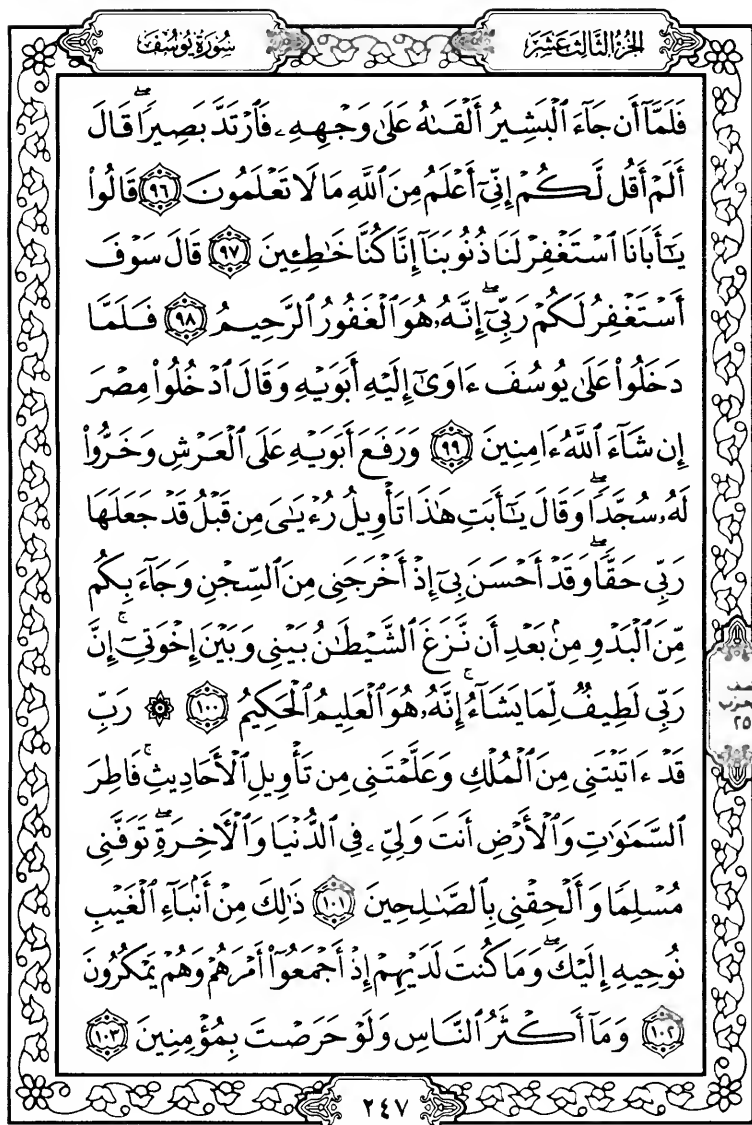 الجزء الثالث عشر
سورة يوسف
فَلَمَّآ أَن جَآءَ ٱلْبَشِيرُ أَلْقَىٰهُ عَلَىٰ وَجْهِهِۦ فَٱرْتَدَّ بَصِيرًاۖ قَالَ
أَلَمْ أَقُل لَّكُمْ إِنِّىٓ أَعْلَمُ مِنَ ٱللَّهِ مَا لَا تَعْلَمُونَ ٩٦ قَالُوا۟
يَٰٓأَبَانَا ٱسْتَغْفِرْ لَنَا ذُنُوبَنَآ إِنَّا كُنَّا خَٰطِـِٔينَ ٩٧ قَالَ سَوْفَ
أَسْتَغْفِرُ لَكُمْ رَبِّىٓۖ إِنَّهُۥ هُوَ ٱلْغَفُورُ ٱلرَّحِيمُ ٩٨ فَلَمَّا
دَخَلُوا۟ عَلَىٰ يُوسُفَ ءَاوَىٰٓ إِلَيْهِ أَبَوَيْهِ وَقَالَ ٱدْخُلُوا۟ مِصْرَ
إِن شَآءَ ٱللَّهُ ءَامِنِينَ ٩٩ وَرَفَعَ أَبَوَيْهِ عَلَى ٱلْعَرْشِ وَخَرُّوا۟
لَهُۥ سُجَّدًاۖ وَقَالَ يَٰٓأَبَتِ هَٰذَا تَأْوِيلُ رُءْيَٰىَ مِن قَبْلُ قَدْ جَعَلَهَا
رَبِّى حَقًّاۖ وَقَدْ أَحْسَنَ بِىٓ إِذْ أَخْرَجَنِى مِنَ ٱلسِّجْنِ وَجَآءَ بِكُم
مِّنَ ٱلْبَدْوِ مِنۢ بَعْدِ أَن نَّزَغَ ٱلشَّيْطَٰنُ بَيْنِى وَبَيْنَ إِخْوَتِىٓۚ إِنَّ
رَبِّى لَطِيفٌ لِّمَا يَشَآءُۚ إِنَّهُۥ هُوَ ٱلْعَلِيمُ ٱلْحَكِيمُ ١٠٠ ۞ رَبِّ
قَدْ ءَاتَيْتَنِى مِنَ ٱلْمُلْكِ وَعَلَّمْتَنِى مِن تَأْوِيلِ ٱلْأَحَادِيثِۚ فَاطِرَ
ٱلسَّمَٰوَٰتِ وَٱلْأَرْضِ أَنتَ وَلِىِّۦ فِى ٱلدُّنْيَا وَٱلْءَاخِرَةِۖ تَوَفَّنِى
مُسْلِمًا وَأَلْحِقْنِى بِٱلصَّٰلِحِينَ ١٠١ ذَٰلِكَ مِنْ أَنۢبَآءِ ٱلْغَيْبِ
نُوحِيهِ إِلَيْكَۖ وَمَا كُنتَ لَدَيْهِمْ إِذْ أَجْمَعُوٓا۟ أَمْرَهُمْ وَهُمْ يَمْكُرُونَ
١٠٢ وَمَآ أَكْثَرُ ٱلنَّاسِ وَلَوْ حَرَصْتَ بِمُؤْمِنِينَ ١٠٣
٢٤٧